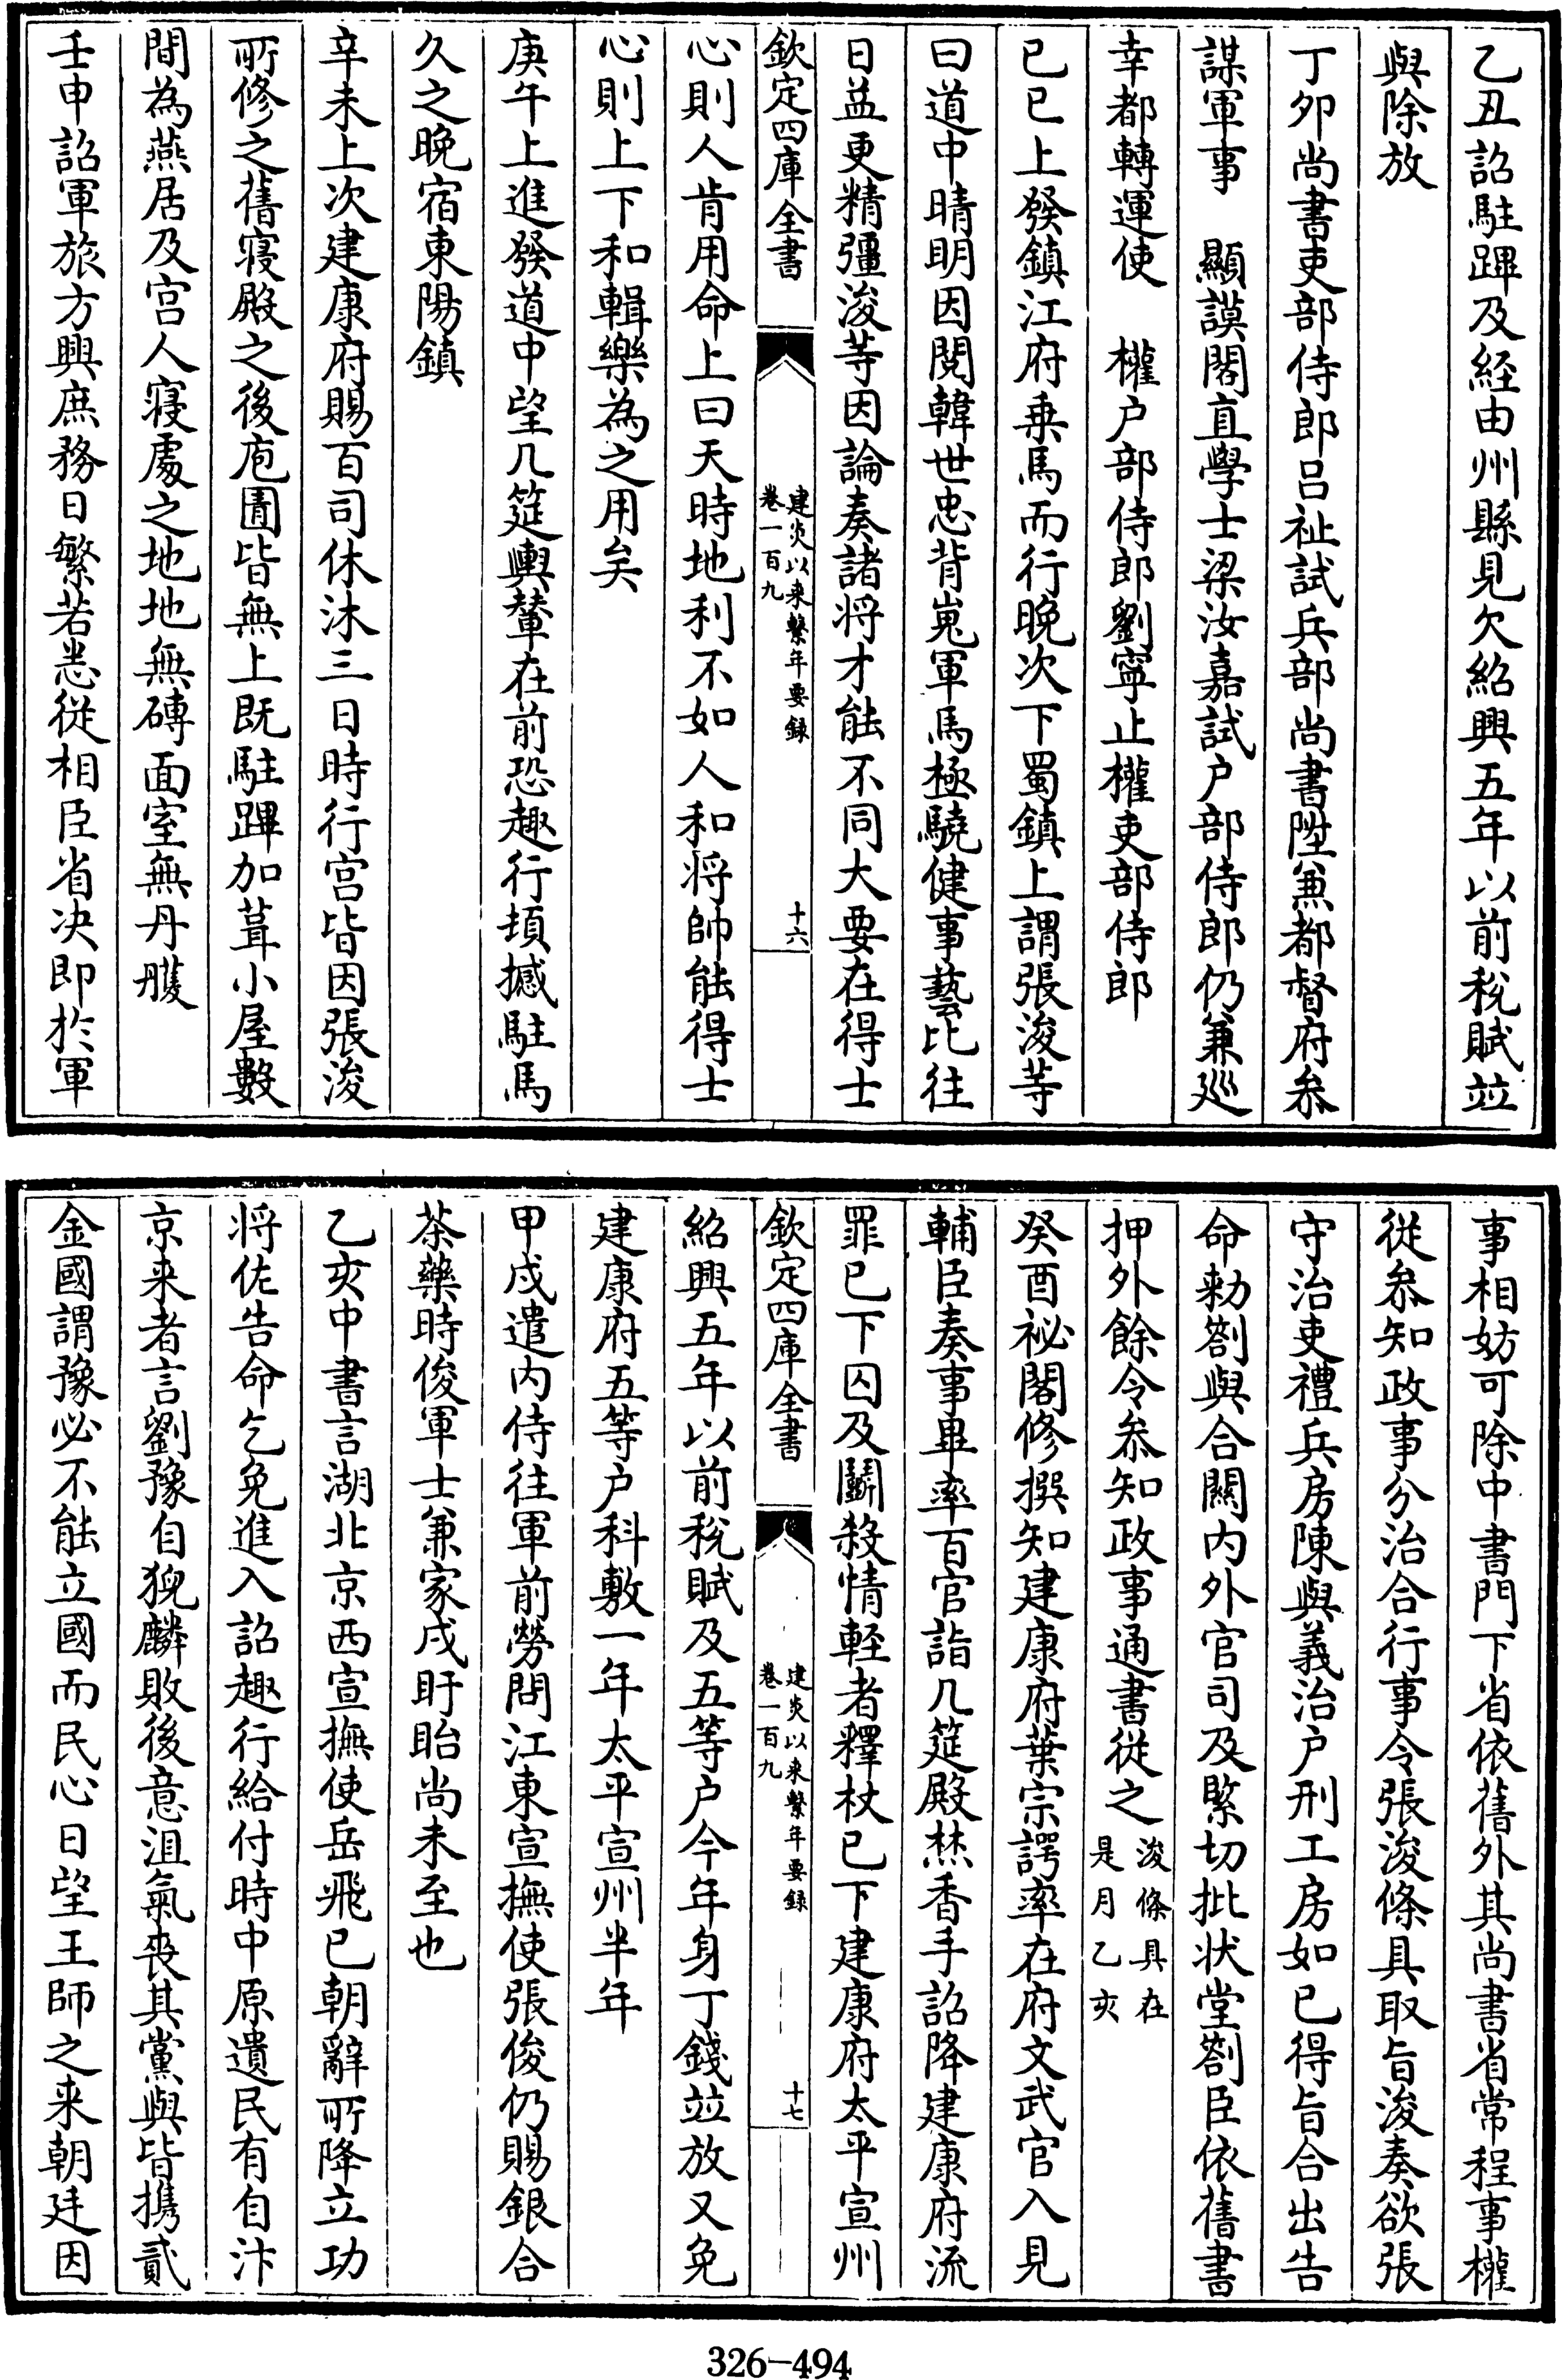 乙丑詔駐蹕及經由州縣見欠紹興五年以前稅賦竝
與除放
丁夘尚書吏部侍郎呂祉試兵部尚書陞兼都督府叅
謀軍事　顯謨閣直學士梁汝嘉試户部侍郎仍兼廵
幸都轉運使　權户部侍郎劉寧止權吏部侍郎
已巳上發鎮江府乗馬而行晚次下蜀鎮上謂張浚等
曰道中晴明因閱韓世忠背嵬軍馬極驍健事藝比往
日益更精彊浚等因論奏諸將才能不同大要在得士
欽定四庫全書
建炎以来繫年要錄
卷一百九
十六
心則人肯用命上曰天時地利不如人和將帥能得士
心則上下和輯樂為之用矣
庚午上進發道中望几筵輿輦在前恐趣行頓撼駐馬
久之晚宿東陽鎮
辛未上次建康府賜百司休沐三日時行宫皆因張浚
所修之舊寢殿之後庖圊皆無上既駐蹕加葺小屋數
間為燕居及宫人寢處之地地無磚面室無丹雘
壬申詔軍旅方興庶務日繁若悉從相臣省決即於軍
事相妨可除中書門下省依舊外其尚書省常程事權
從叅知政事分治合行事令張浚條具取旨浚奏欲張
守治吏禮兵房陳與義治户刑工房如已得旨合出告
命勑劄與合闗内外官司及緊切批状堂劄臣依舊書
押外餘令叅知政事通書從之
浚條具在
是月乙亥
癸酉祕閣修撰知建康府葉宗諤率在府文武官入見
輔臣奏事畢率百官詣几筵殿焚香手詔降建康府流
罪已下囚及鬭殺情輕者釋杖已下建康府太平宣州
欽定四庫全書
建炎以来繫年要錄
卷一百九
十七
紹興五年以前稅賦及五等户今年身丁錢竝放又免
建康府五等户科敷一年太平宣州半年
甲戍遣内侍往軍前勞問江東宣撫使張俊仍賜銀合
茶藥時俊軍士兼家戍盱眙尚未至也
乙亥中書言湖北京西宣撫使岳飛已朝辭所降立功
將佐告命乞免進入詔趣行給付時中原遺民有自汴
京来者言劉豫自猊麟敗後意沮氣喪其黨與皆擕貳
金國謂豫必不能立國而民心日望王師之来朝廷因
326-494